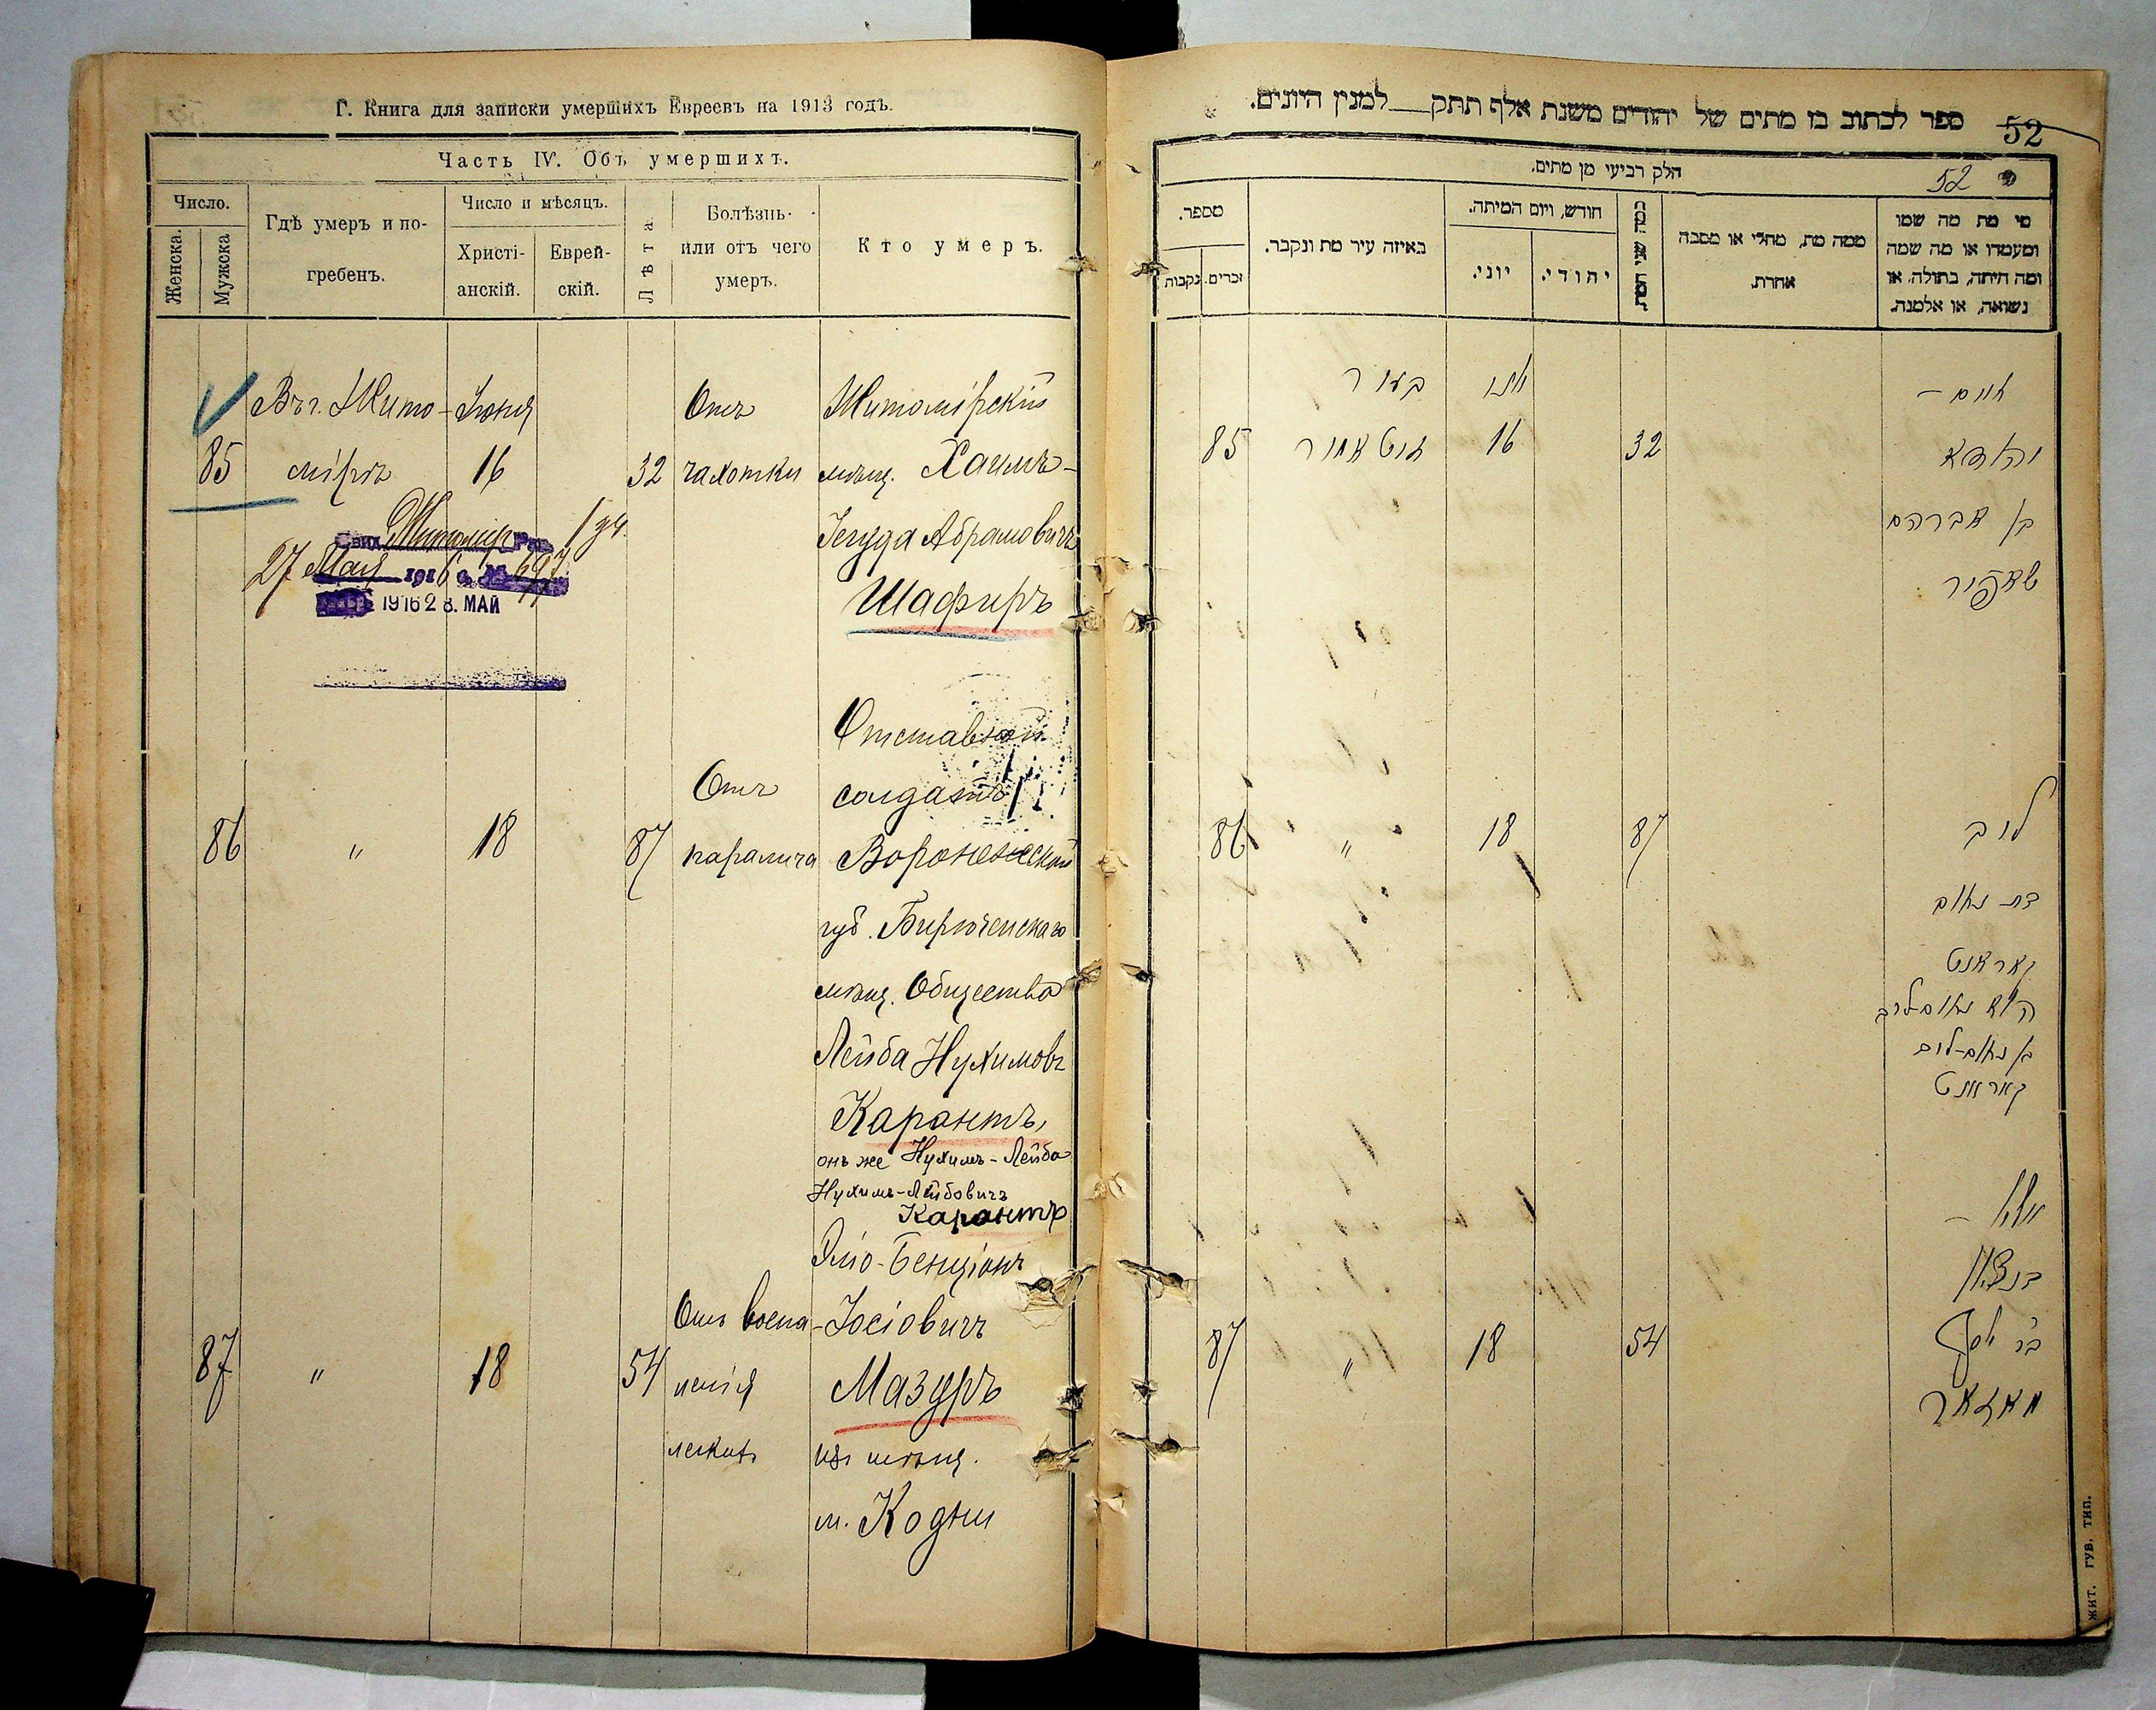 Г. Книга для записки умершихъ Евреевъ на 1913 годъ.
Часть IV. Объ умершихъ.
Число.
Женска.
Мужска
Гдѣ умеръ и по-
гребенъ.
Число и мѣсяцъ.
Христі-
анскій.
Еврей-
скій.
Лѣта
Болѣзнь
или отъ чего
умеръ.
Кто умеръ.
Въ г. Жито- Іюня Отъ Житомірскій
85 мірѣ 16 32 чахотки мѣщ. Хаимъ-
Іегуда Абрамовичъ
Шафиръ
27 Мая 1916
1916 28. МАЙ
Отставной
Отъ солдатъ
86 " 18 87 паралича Воронежской
губ. Бирюченскаго
мѣщ. Общества
Лейба Нухимовъ
Карантъ,
онъ же Нухимъ-Лейба
Нухимъ-Лейбовичъ
Карантъ
Эліо-Бенціонъ
Отъ воспа- Іосіовичъ
87 " 18 54 ленія Мазуръ
легкихъ изъ мѣщ.
м. Кодни
ספר לכתוב בו מתים של יהודים משנת אלף תתק למנין היונים.
52
חלק רביעי מן מתים.
52
מספר.
זכרים.
נקבות
באיזה עיר מת ונקבר.
חודש, ויום המיתה.
יוני.
יהודי.
כמה שני המת.
ממה מת, מחלי או מסבה
אחרת.
מי מת מה שמו
ומעמדו או מה שמה
ומה היתה, בתולה, או
נשואה, או אלמנה.
יוני חיים -
85 16 32 יהודא
בן אברהם
שאפיר
86 " 18 87 ליב
בן נחום
קאראנט
הוא נחום-ליב
בן נחום-ליב
קאראנט
אליו -
בנציון
87 " 18 54 בר יוסף
מאזאר
жит. губ. тип.